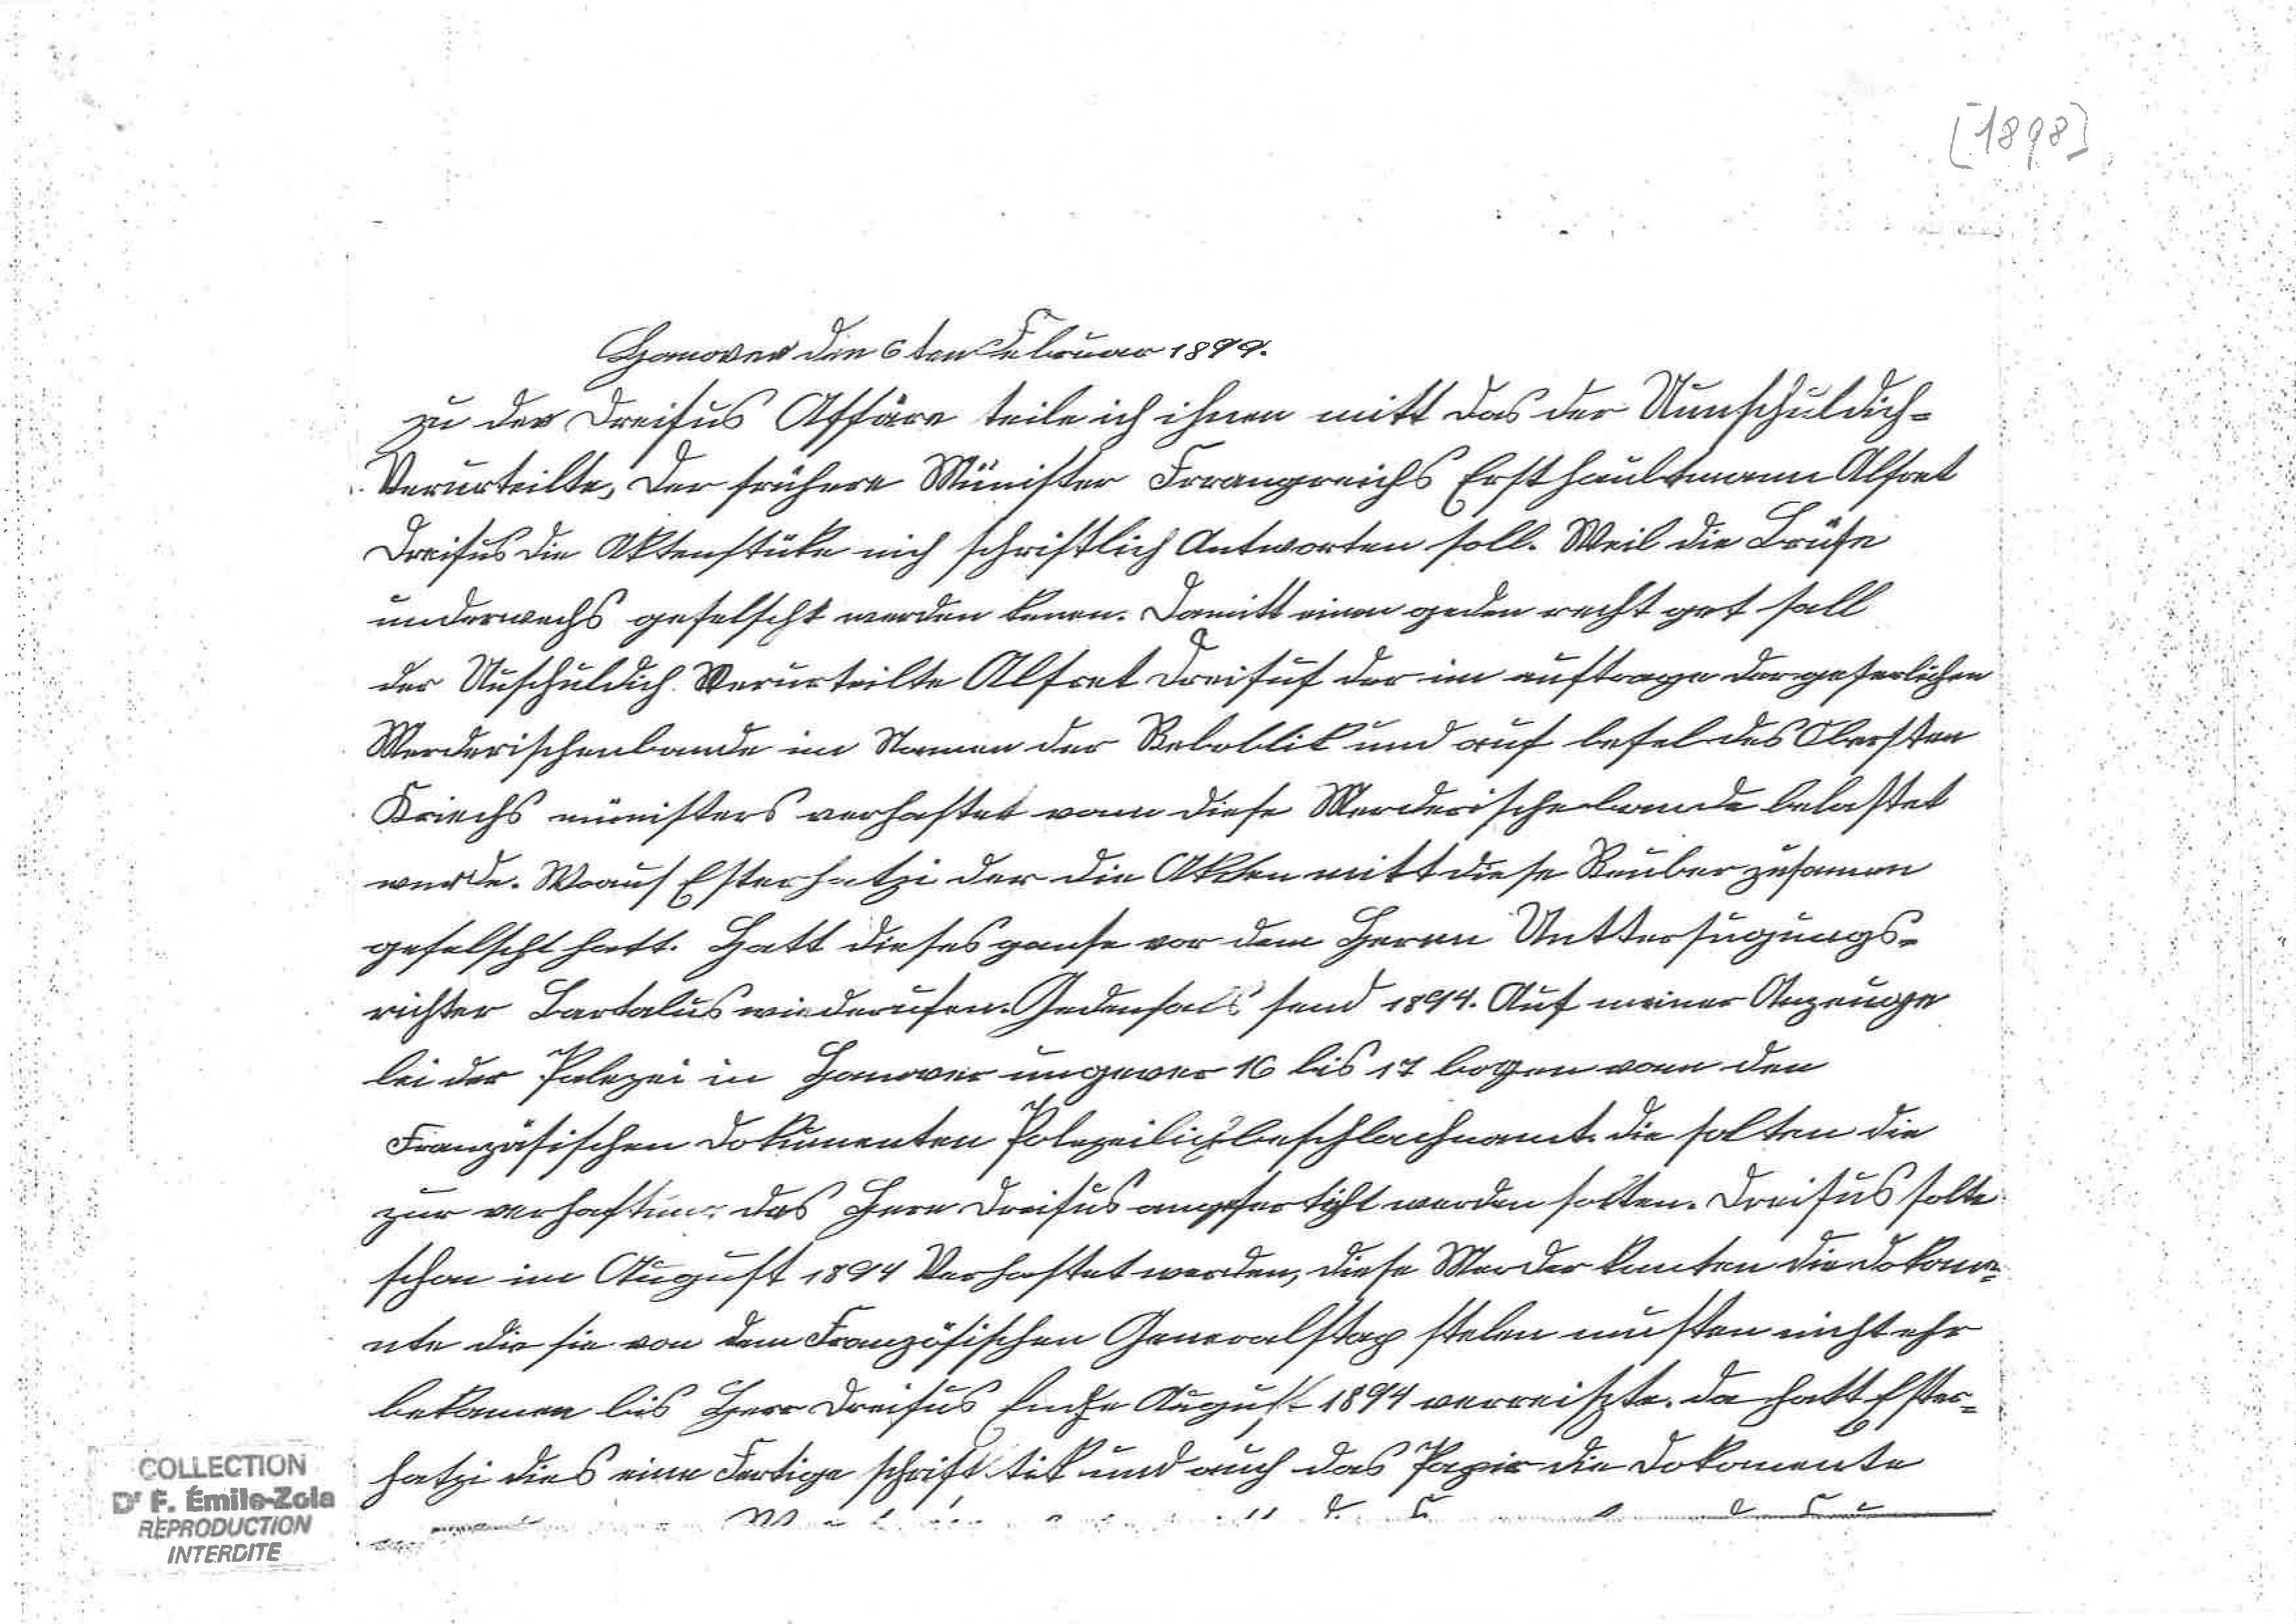 [1898]
Hanover den 6ten Februar 1899.
zu der Dreifus Affäre teile ich ihnen mitt das der Uunschuldich-
Verurteilte, der frühere Münister Frrangreichs Ersthaubtmann Alfret
Dreifus die Aktenstüke nich schriftlich Antworten soll. Weil die Brüfe
underwechs gefelscht werden kenen. Damitt einen geden recht get sall
der Unschuldich Verurteilte Alfret Dreifus der im auftrage der geferlichen
Merderischenbande im Namen der Reboblik und auf befel des Obersten
Kriechs münisters verhaftet vonn diese Merderischebande belastet
wurde. Woraus Esterhatzi der die Akten mitt diese Reuber zusamen
gefelscht hatt. Hatt dieses ganse vor dem Herrn Unttersugungs-
richter Bartalus wiederufen. Gedenfals send 1894. Auf meiner Anzeuge
bei der Polezei in Hanover ungewer 16 bis 17 bogen vonn den
Französischen Dokumenten Polezeilich beschlachnamt. die solten die
zur verhaftung des Herrn Dreifus angeferticht werden solten. Dreifus solte
schon im August 1894 Verhaftet werden, diese Merder konten die Dokome-
nte die sie von dem Französischen Generalstap stelen musten nicht ehr
bekomen bis Herr Dreifus Ende August 1894 verreiste. da hatt Ester-
hatzi dies eine Fertige schrift und auch das Papir die Dokomente
COLLECTION
Dr F. Émile-Zola
REPRODUCTION
INTERDITE